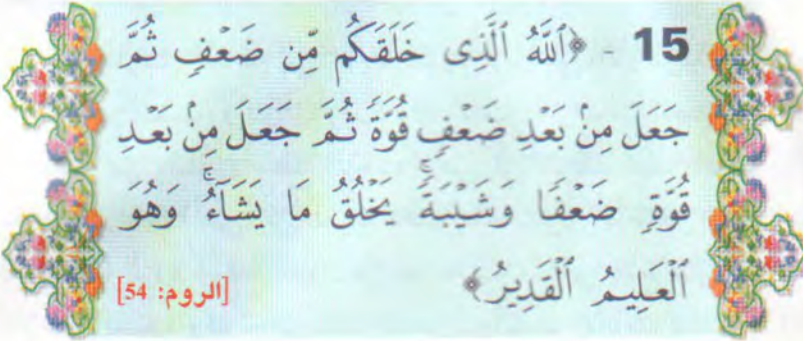 15 - ﴿ٱللَّهُ ٱلَّذِى خَلَقَكُم مِّن ضَعْفٍ ثُمَّ
جَعَلَ مِنۢ بَعْدِ ضَعْفٍ قُوَّةً ثُمَّ جَعَلَ مِنۢ بَعْدِ
قُوَّةٍ ضَعْفًا وَشَيْبَةً ۚ يَخْلُقُ مَا يَشَآءُ ۚ وَهُوَ
ٱلْعَلِيمُ ٱلْقَدِيرُ﴾ [الروم: 54]